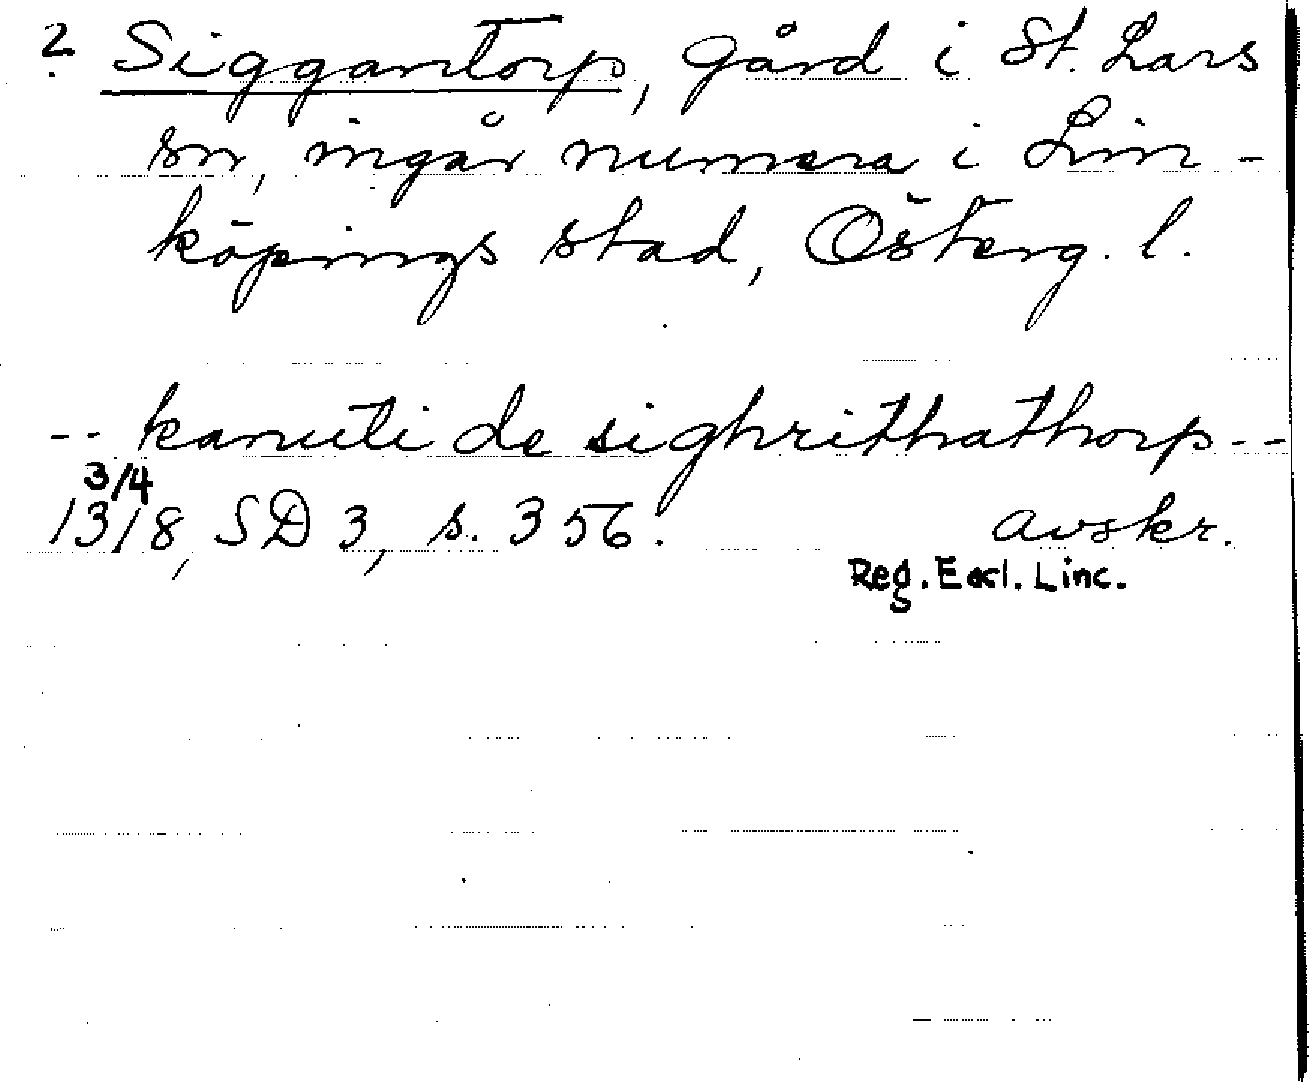 ? Siggantorp, gård i St. Lars
sn, ingår numera i Lin-
köpings stad, Österg. l.
-- kanuti de sighrithathorp --
3/4
1318, SD 3, s. 356. avskr.
Reg. Eccl. Linc.